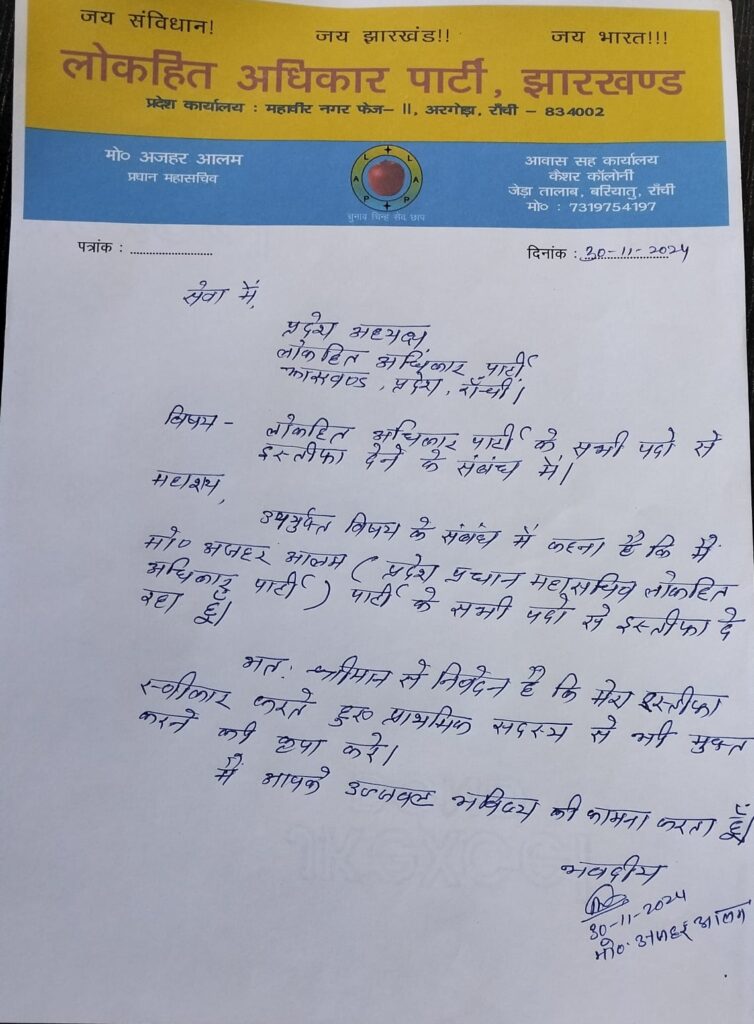 जय संविधान!
जय झारखंड!!
जय भारत!!!
लोकहित अधिकार पार्टी, झारखण्ड
प्रदेश कार्यालय : महावीर नगर फेज– II, अरगोड़ा, राँची – 834002
मो० अजहर आलम
प्रधान महासचिव
L A P P
चुनाव चिन्ह सेव छाप
आवास सह कार्यालय
कैशर कॉलोनी
जेड़ा तालाब, बरियातु, राँची
मो० : 7319754197
पत्रांक :
दिनांक : 30-11-2024
सेवा में,
प्रदेश अध्यक्ष
लोकहित अधिकार पार्टी
झारखण्ड, प्रदेश, राँची।
विषय - लोकहित अधिकार पार्टी के सभी पदो से
इस्तीफा देने के संबंध में।
महाशय,
उपर्युक्त विषय के संबंध में कहना है कि मैं
मो० अजहर आलम ( प्रदेश प्रधान महासचिव लोकहित
अधिकार पार्टी ) पार्टी के सभी पदो से इस्तीफा दे
रहा हूँ।
अत: श्रीमान से निवेदन है कि मेरा इस्तीफा
स्वीकार करते हुए प्राथमिक सदस्य से भी मुक्त
करने की कृपा करे।
मैं आपके उज्जवल भविष्य की कामना करता हूँ।
भवदीय
30-11-2024
मो० अजहर आलम